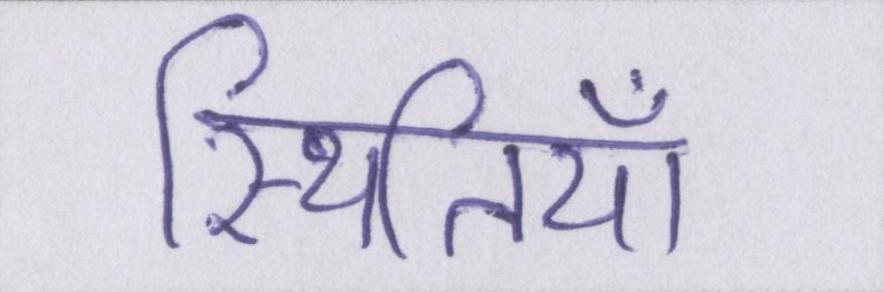 स्थितियाँ